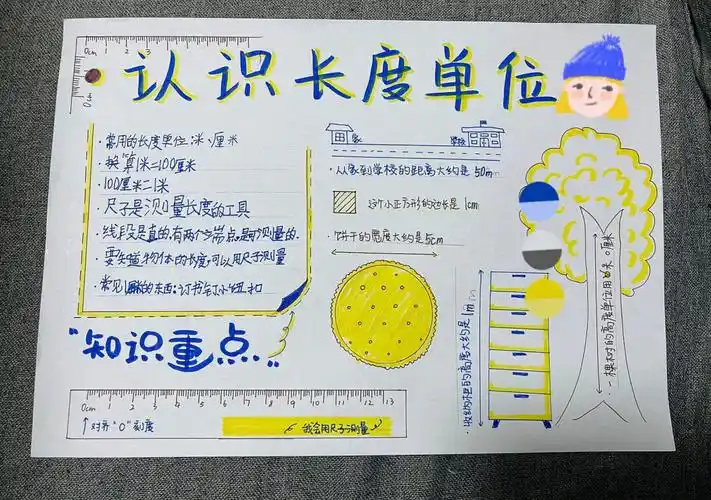 认识长度单位
0cm 1 2 3
0cm
·常用的长度单位:米、厘米
·换算1米=100厘米
·100厘米=1米
·尺子是测量长度的工具
·线段是直的,有两个端点,是可测量的.
·要知道物体的长度,可以用尺子测量
·常见1厘米的东西:订书钉、小纽扣
"知识重点"
家
学校
·从家到学校的距离大约是50m
这个小正方形的边长是1cm
·饼干的宽度大约是5cm
·收纳柜的高度大约是1m
·一棵树的高度单位用米
0cm 1 2 3 4 5 6 7 8 9 10 11 12 13
↑对齐"0"刻度
我会用尺子测量